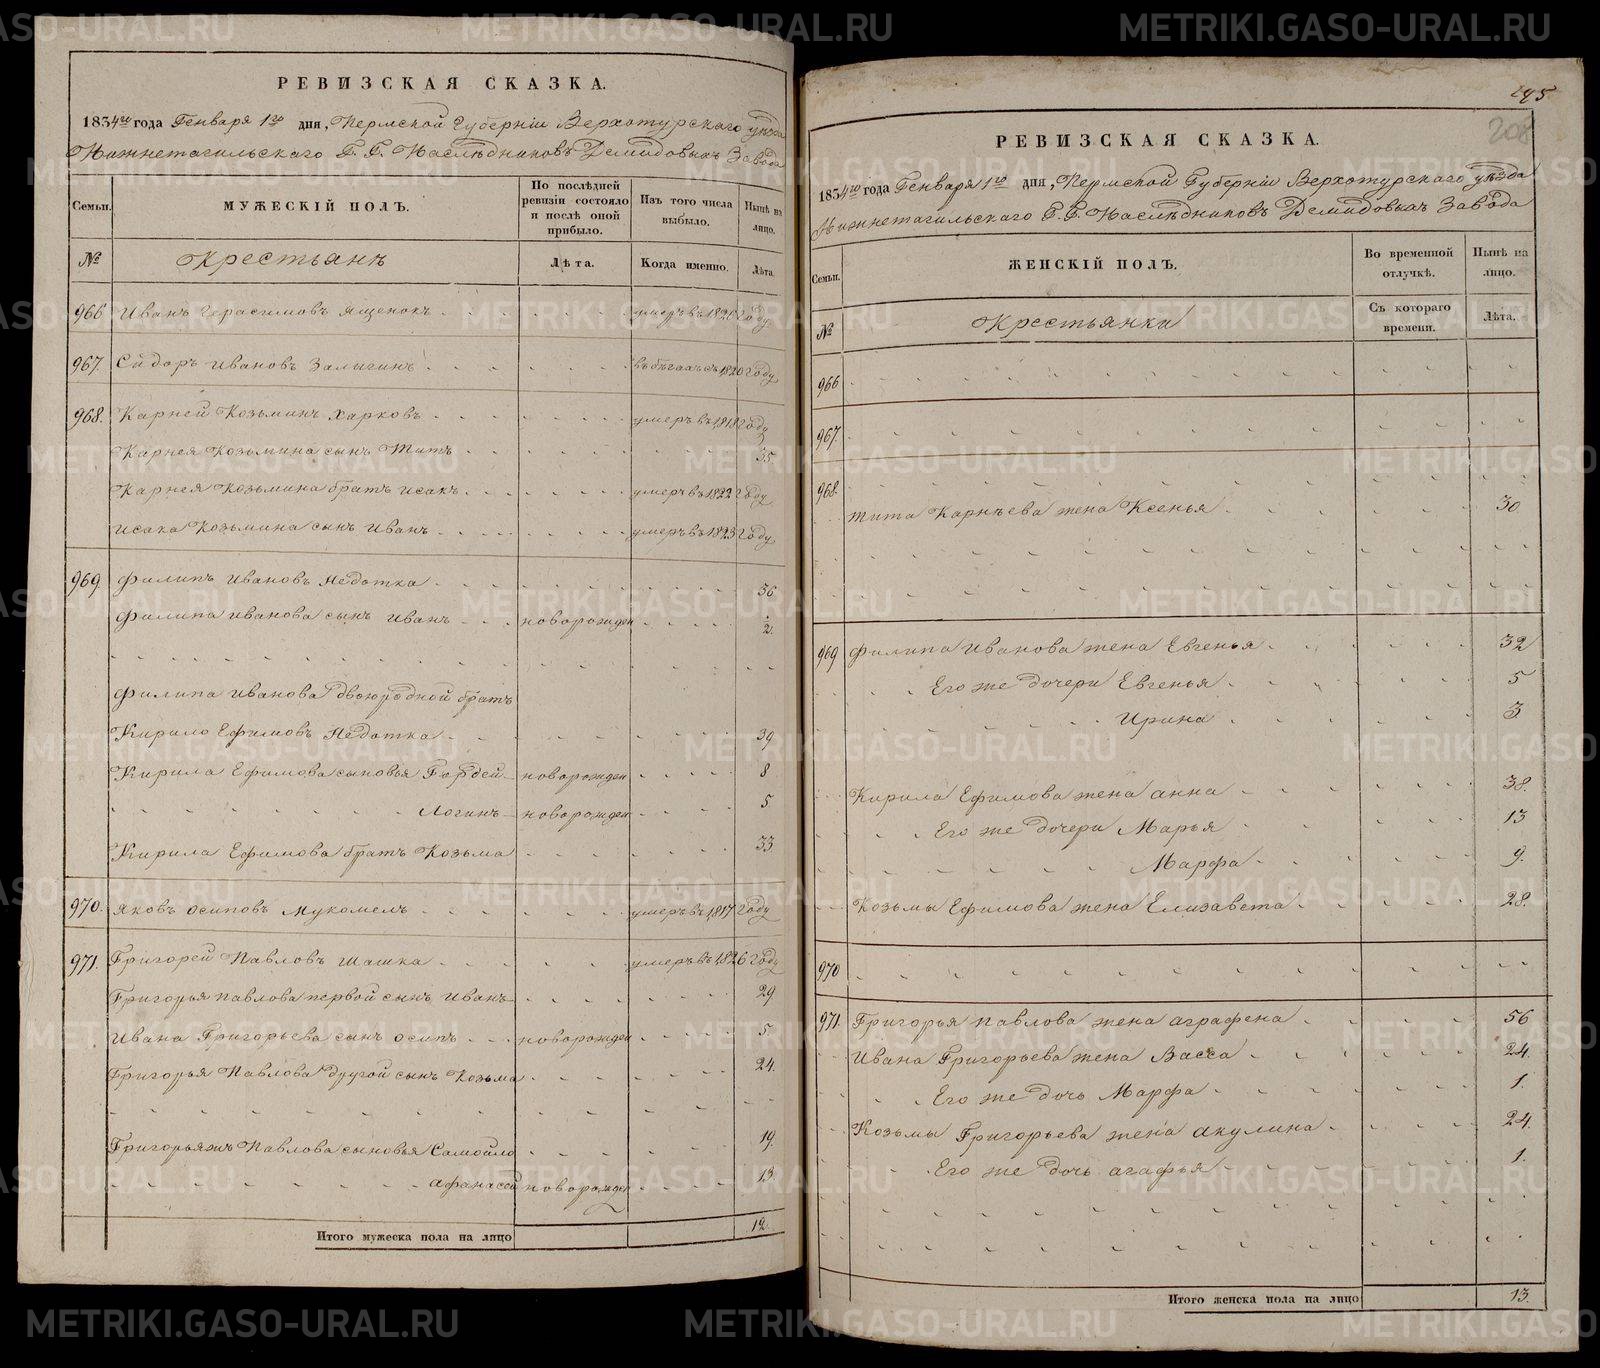 РЕВИЗСКАЯ СКАЗКА.
1834го года Генваря 1го дня, Пермской Губернiи Верхотурскаго уѣзда
Нижнетагильскаго Г. Г. Наслѣдниковъ Демидовыхъ Завода
Семьи.
МУЖЕСКIЙ ПОЛЪ.
По послѣдней ревизiи состояло и послѣ оной прибыло.
Изъ того числа выбыло.
Нынѣ на лицо.
№
Крестьянъ
Лѣта.
Когда именно.
Лѣта.
966 Иванъ Герасимовъ Ященокъ умеръ въ 1821 Году
967. Сидоръ Ивановъ Залыгинъ въ бѣгахъ съ 1820 Году
968. Карней Козьминъ Харковъ умеръ въ 1818 Году
Карнея Козьмина сынъ Титъ 35.
Карнея Козьмина братъ Исакъ умеръ въ 1822 Году
Исака Козьмина сынъ Иванъ умеръ въ 1823 Году
969 Филипъ Ивановъ Недотка 56
Филипа Иванова сынъ Иванъ новорожден 2.
Филипа Иванова двоюродной братъ
Кирило Ефимовъ Недотка 39
Кирила Ефимова сыновья Гордей новорожден 8
Логинъ новорожден 5
Кирила Ефимова братъ Козьма 33
970. Яковъ Осиповъ Мукомелъ умеръ въ 1817 Году
971. Григорей Павловъ Шашка умеръ въ 1826 Году
Григорья Павлова первой сынъ Иванъ 29
Ивана Григорьева сынъ Осипъ новорожден 5
Григорья Павлова другой сынъ Козьма 24.
Григорья жъ Павлова сыновья Самойло 19.
Афанасей новорожден 13
Итого мужеска пола на лицо 12.
195
208
РЕВИЗСКАЯ СКАЗКА.
1834го года Генваря 1го дня, Пермской Губернiи Верхотурскаго уѣзда
Нижнетагильскаго Г. Г. Наслѣдниковъ Демидовыхъ Завода
Семьи.
ЖЕНСКIЙ ПОЛЪ.
Во временной отлучкѣ.
Нынѣ на лицо.
№
Крестьянки
Съ котораго времени.
Лѣта.
966
967.
968.
Тита Карнѣева жена Ксенья 30
969 Филипа Иванова жена Евгенья 32
Его же дочери Евгенья 5
Ирина 3
Кирила Ефимова жена Анна 38.
Его же дочери Марья 13
Марфа 9.
Козьмы Ефимова жена Елизавета 28.
970
971. Григорья Павлова жена Аграфена 56
Ивана Григорьева жена Васса 24.
Его же дочь Марфа 1.
Козьмы Григорьева жена Акулина 24.
Его же дочь Агафья 1.
Итого женска пола на лицо 13.
METRIKI.GASO-URAL.RU